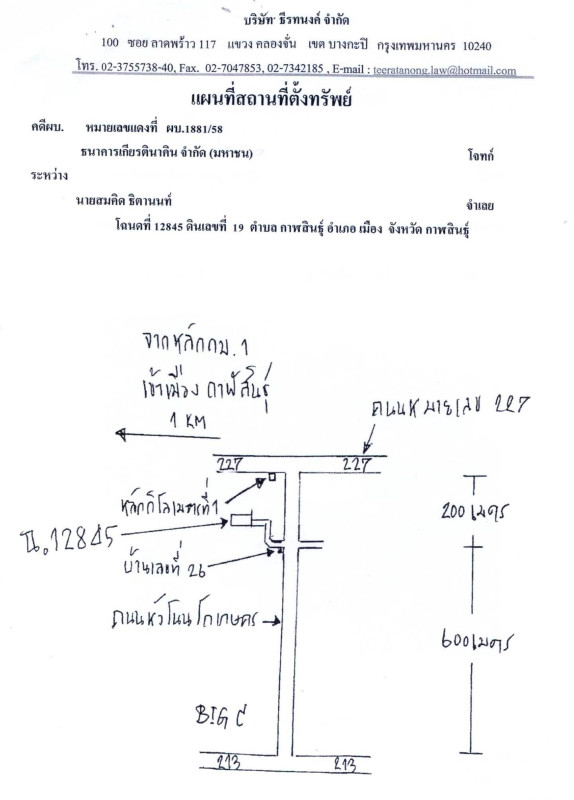 บริษัท ธีรทนงค์ จำกัด
100 ซอย ลาดพร้าว 117 แขวง คลองจั่น เขต บางกะปิ กรุงเทพมหานคร 10240
โทร. 02-3755738-40, Fax. 02-7047853, 02-7342185 , E-mail : teeratanong.law@hotmail.com
แผนที่สถานที่ตั้งทรัพย์
คดีผบ. หมายเลขแดงที่ ผบ.1881/58
ธนาคารเกียรตินาคิน จำกัด (มหาชน) โจทก์
ระหว่าง
นายสมคิด ธิตานนท์ จำเลย
โฉนดที่ 12845 ดินเลขที่ 19 ตำบล กาฬสินธุ์ อำเภอ เมือง จังหวัด กาฬสินธุ์
จากหลักกม.1
เข้าเมือง กาฬสินธุ์
1 KM
ถนนหมายเลข 227
227 227
หลักกิโลเมตรที่1
200 เมตร
น.12845
บ้านเลขที่ 26
ถนนหัวโนนโกเกษตร
600 เมตร
BIG C
213 213